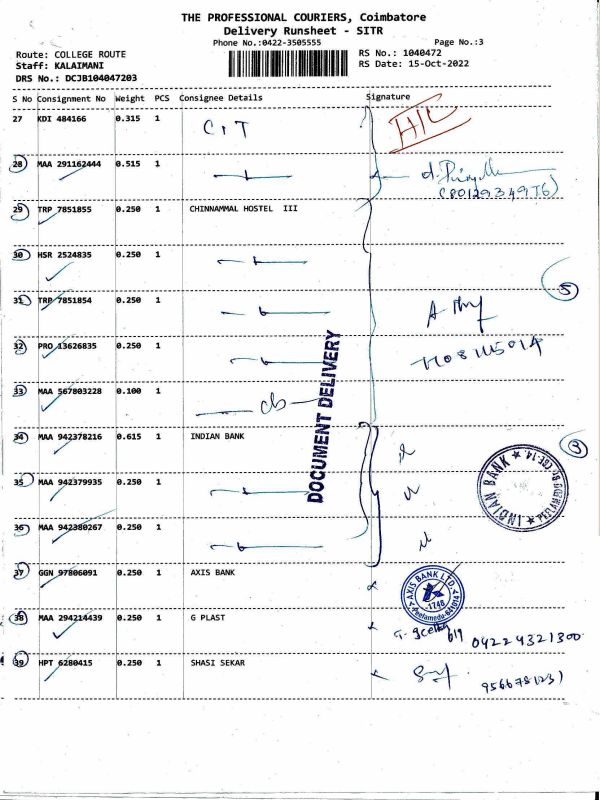 THE PROFESSIONAL COURIERS, Coimbatore
Delivery Runsheet - SITR
Phone No.:0422-3505555
Page No.:3
Route: COLLEGE ROUTE
Staff: KALAIMANI
DRS No.: DCJB104047203
RS No.: 1040472
RS Date: 15-Oct-2022
S No Consignment No Weight PCS Consignee Details Signature
27 KDI 484166 0.315 1 CIT
28 MAA 291162444 0.515 1
29 TRP 7851855 0.250 1 CHINNAMMAL HOSTEL III
30 HSR 2524835 0.250 1
31 TRP 7851854 0.250 1
5
32 PRO 13626835 0.250 1
33 MAA 567803228 0.100 1
DOCUMENT DELIVERY
34 MAA 942378216 0.615 1 INDIAN BANK
3
35 MAA 942379935 0.250 1
INDIAN BANK
36 MAA 942380267 0.250 1
37 GGN 97806091 0.250 1 AXIS BANK
AXIS BANK LTD
1748
38 MAA 294214439 0.250 1 G PLAST
04224321300
39 HPT 6280415 0.250 1 SHASI SEKAR